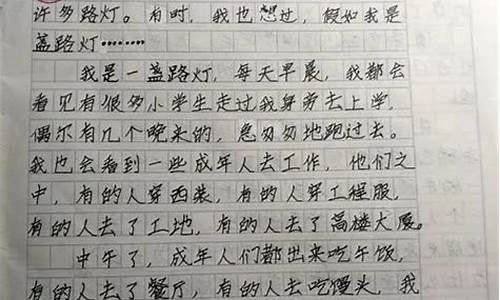 许多路灯。有时，我也想过，假如我是
盏路灯………
我是一盏路灯，每天早晨，我都会
看见有很多小学生走过我身旁去上学，
偶尔有几个晚来的，急匆匆地跑过去。
我也会看到一些成年人去工作，他们之
中，有的人穿西装，有的人穿工程服，
有的人去了工地，有的人去了高楼大厦。
中午了，成年人们都出来吃午饭，
有的人去了餐厅，有的人去吃馒头，我